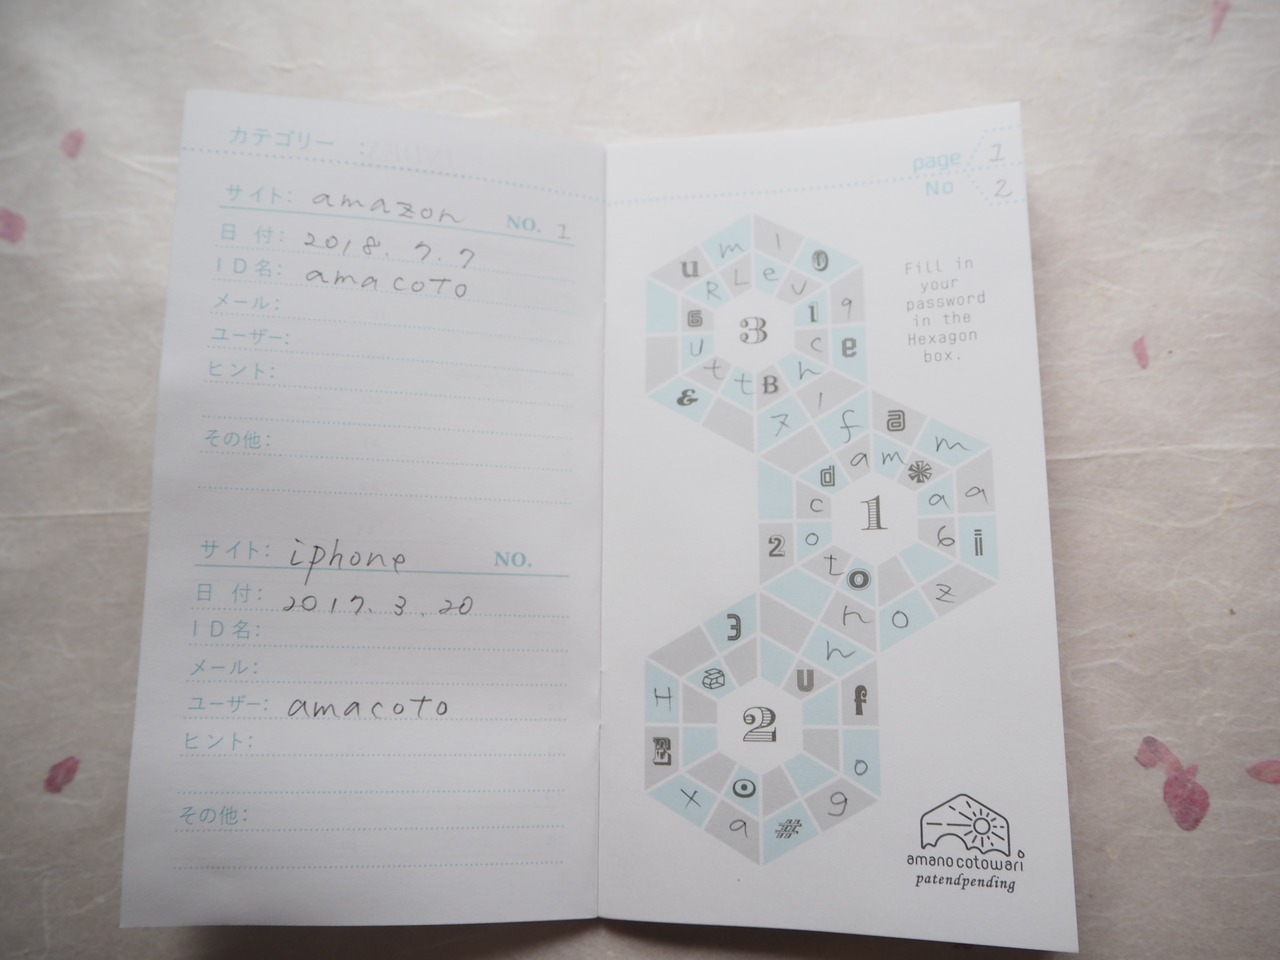 カテゴリー :
サイト: amazon NO. 1
日 付: 2018. 7. 7
ID名: amacoto
メール:
ユーザー:
ヒント:
その他:
サイト: iphone NO.
日 付: 2017. 3. 20
ID名:
メール:
ユーザー: amacoto
ヒント:
その他:
page 1
No 2
Fill in
your
password
in the
Hexagon
box.
u m l 0 9 e
R L e v 1 c h B t t U 6
3
& 7 l
f a m a i z o n
d a m * a 6 o t o c
1
2
3 H E x a # g o f n
U o
2
amanocotowari
patendpending